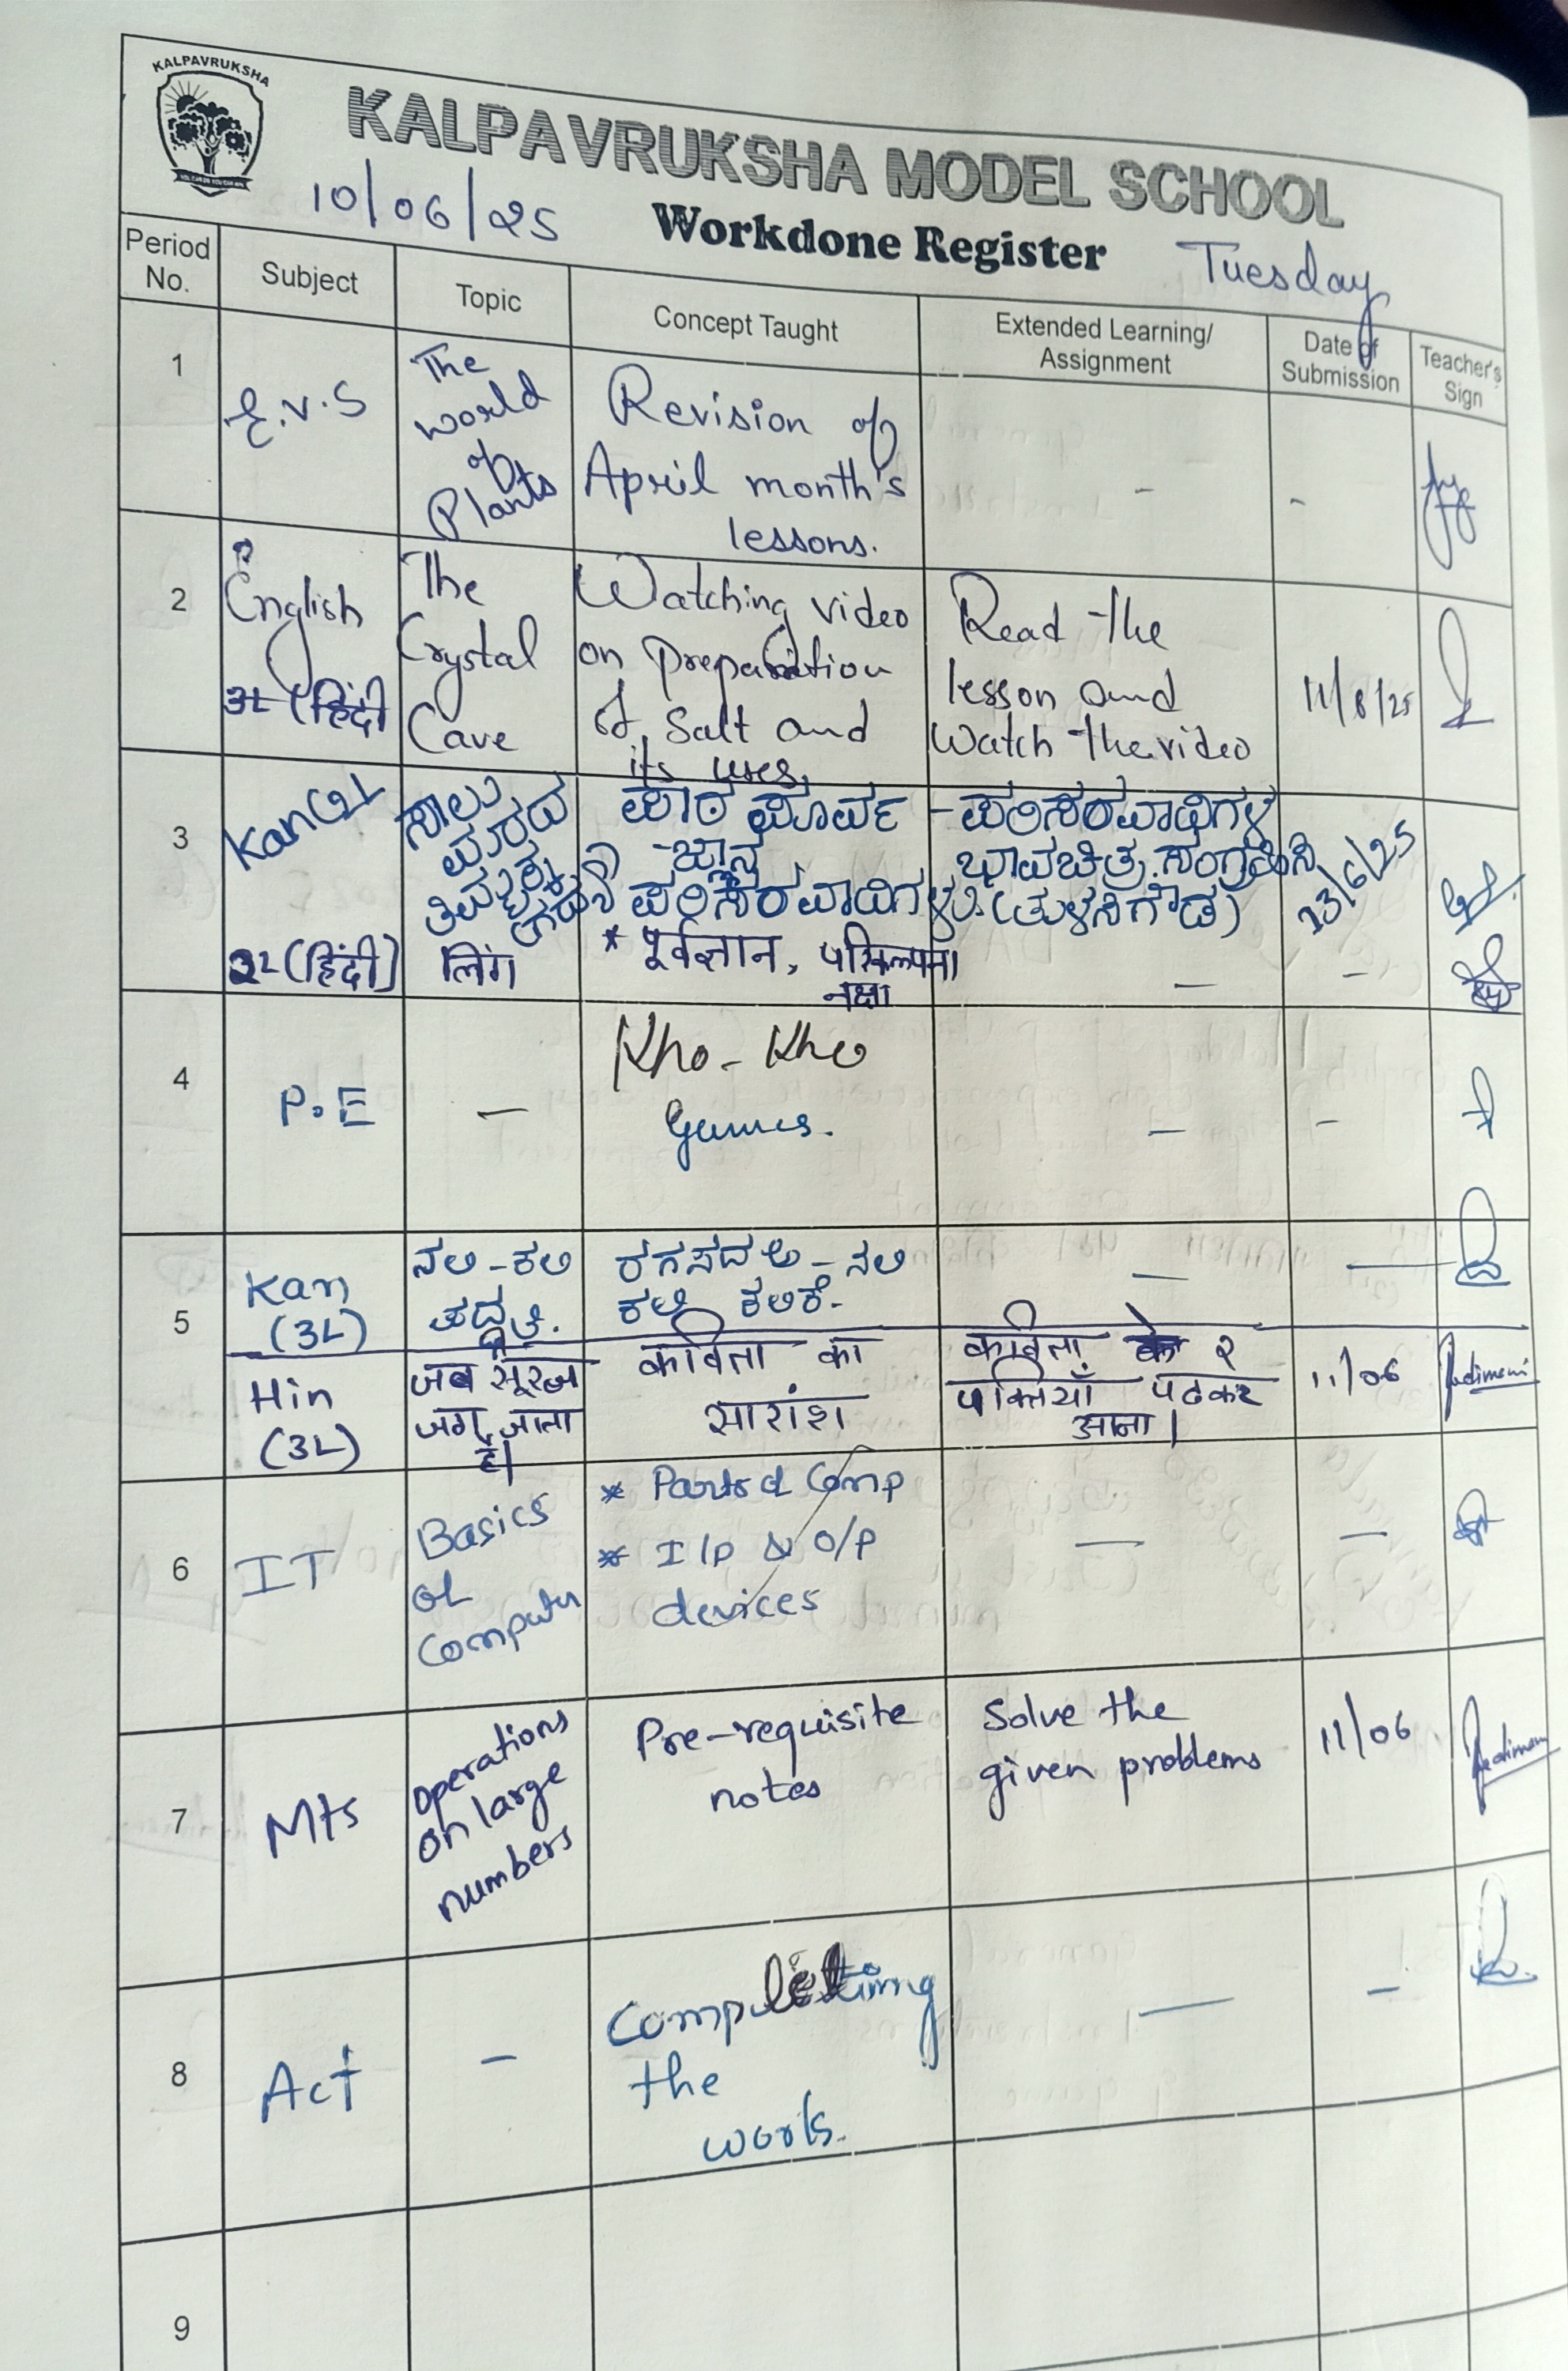 KALPAVRUKSHA
KALPAVRUKSHA MODEL SCHOOL
10/06/25
Workdone Register
Tuesday
Period No.
Subject
Topic
Concept Taught
Extended Learning/ Assignment
Date of Submission
Teacher's Sign
1
E.V.S
The world of Plants
Revision of
April month's
lessons.
-
-
2
English
3L (हिंदी
The
Crystal
Cave
Watching video
on Preparation
of Salt and
its uses,
Read the
lesson and
Watch the video
11/6/25
3
Kan 2L
ಸಾಲು
ಮರದ
ತಿಮ್ಮಕ್ಕ
ಪಾಠ ಪೂರ್ವ
ಜ್ಞಾನ
ಪರಿಸರವಾದಿಗಳು.
-ಪರಿಸರವಾದಿಗಳ
ಭಾವಚಿತ್ರ ಸಂಗ್ರಹಿಸಿ
(ತುಳಸಿಗೌಡ)
13/6/25
2L (हिंदी)
लिंग
* पूर्वज्ञान, परिकल्पना
नक्षा
—
–
4
P.E
—
Kho-Kho
Games.
—
–
5
Kan
(3L)
ನಲಿ-ಕಲಿ
ಪದ್ಧತಿ.
ರಗಸದಅ - ನಲಿ
ಕಲಿ ಕಲಿಕೆ-
—
—
Hin
(3L)
जब सूरज
जग जाता
है|
कविता का
सारांश
कविता के २
पंक्तियाँ पढकर
आना|
11/06
6
IT
Basics
of
Computer
* Parts of Comp
* I/p & O/p
devices
—
—
7
Mts
Operations
on large
numbers
Pre-requisite
notes
Solve the
given problems
11/06
8
Act
–
Completing
the
works.
—
–
9